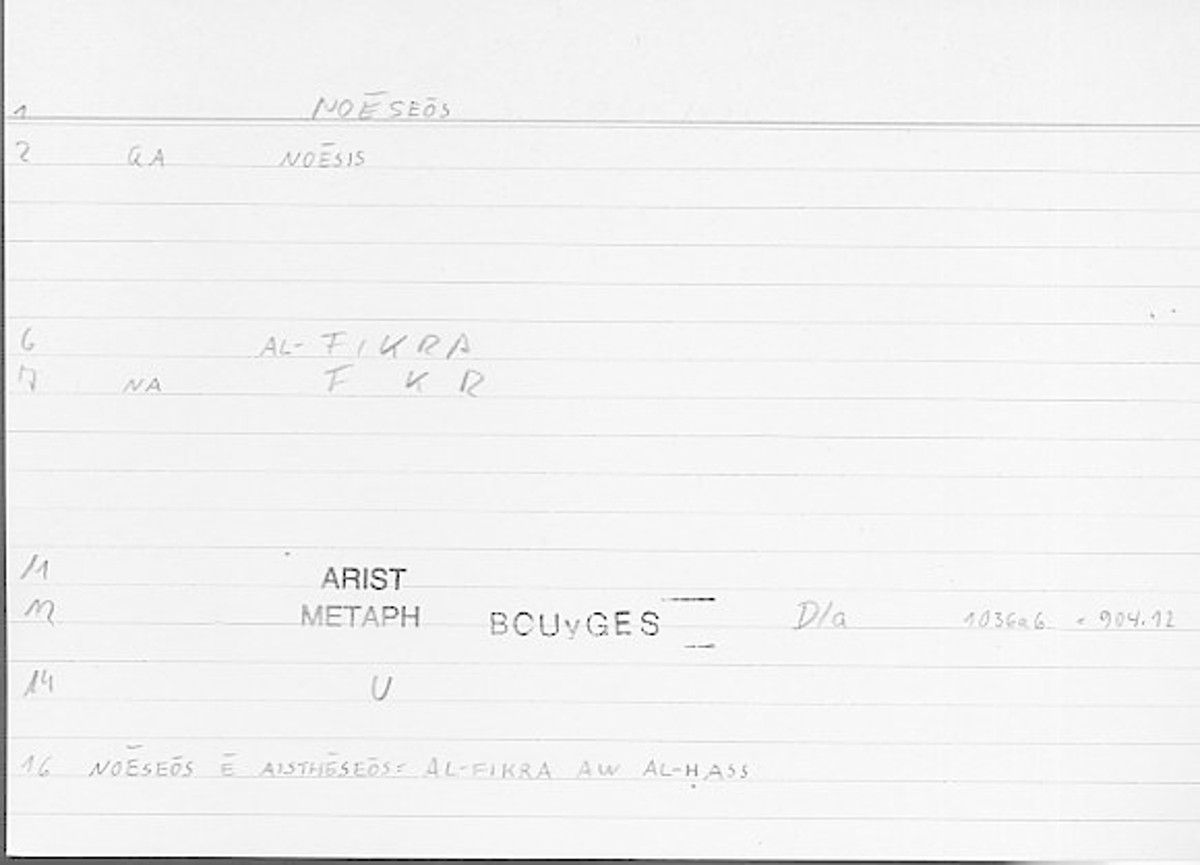 1 NOĒSEŌS
2 GA NOĒSIS
6 AL-FIKRA
7 NA F K R
11 ARIST
12 METAPH BCUyGES D/a 1036a6 = 904.12
14 U
16 NOĒSEŌS Ē AISTHĒSEŌS: AL-FIKRA AW AL-ḤASS